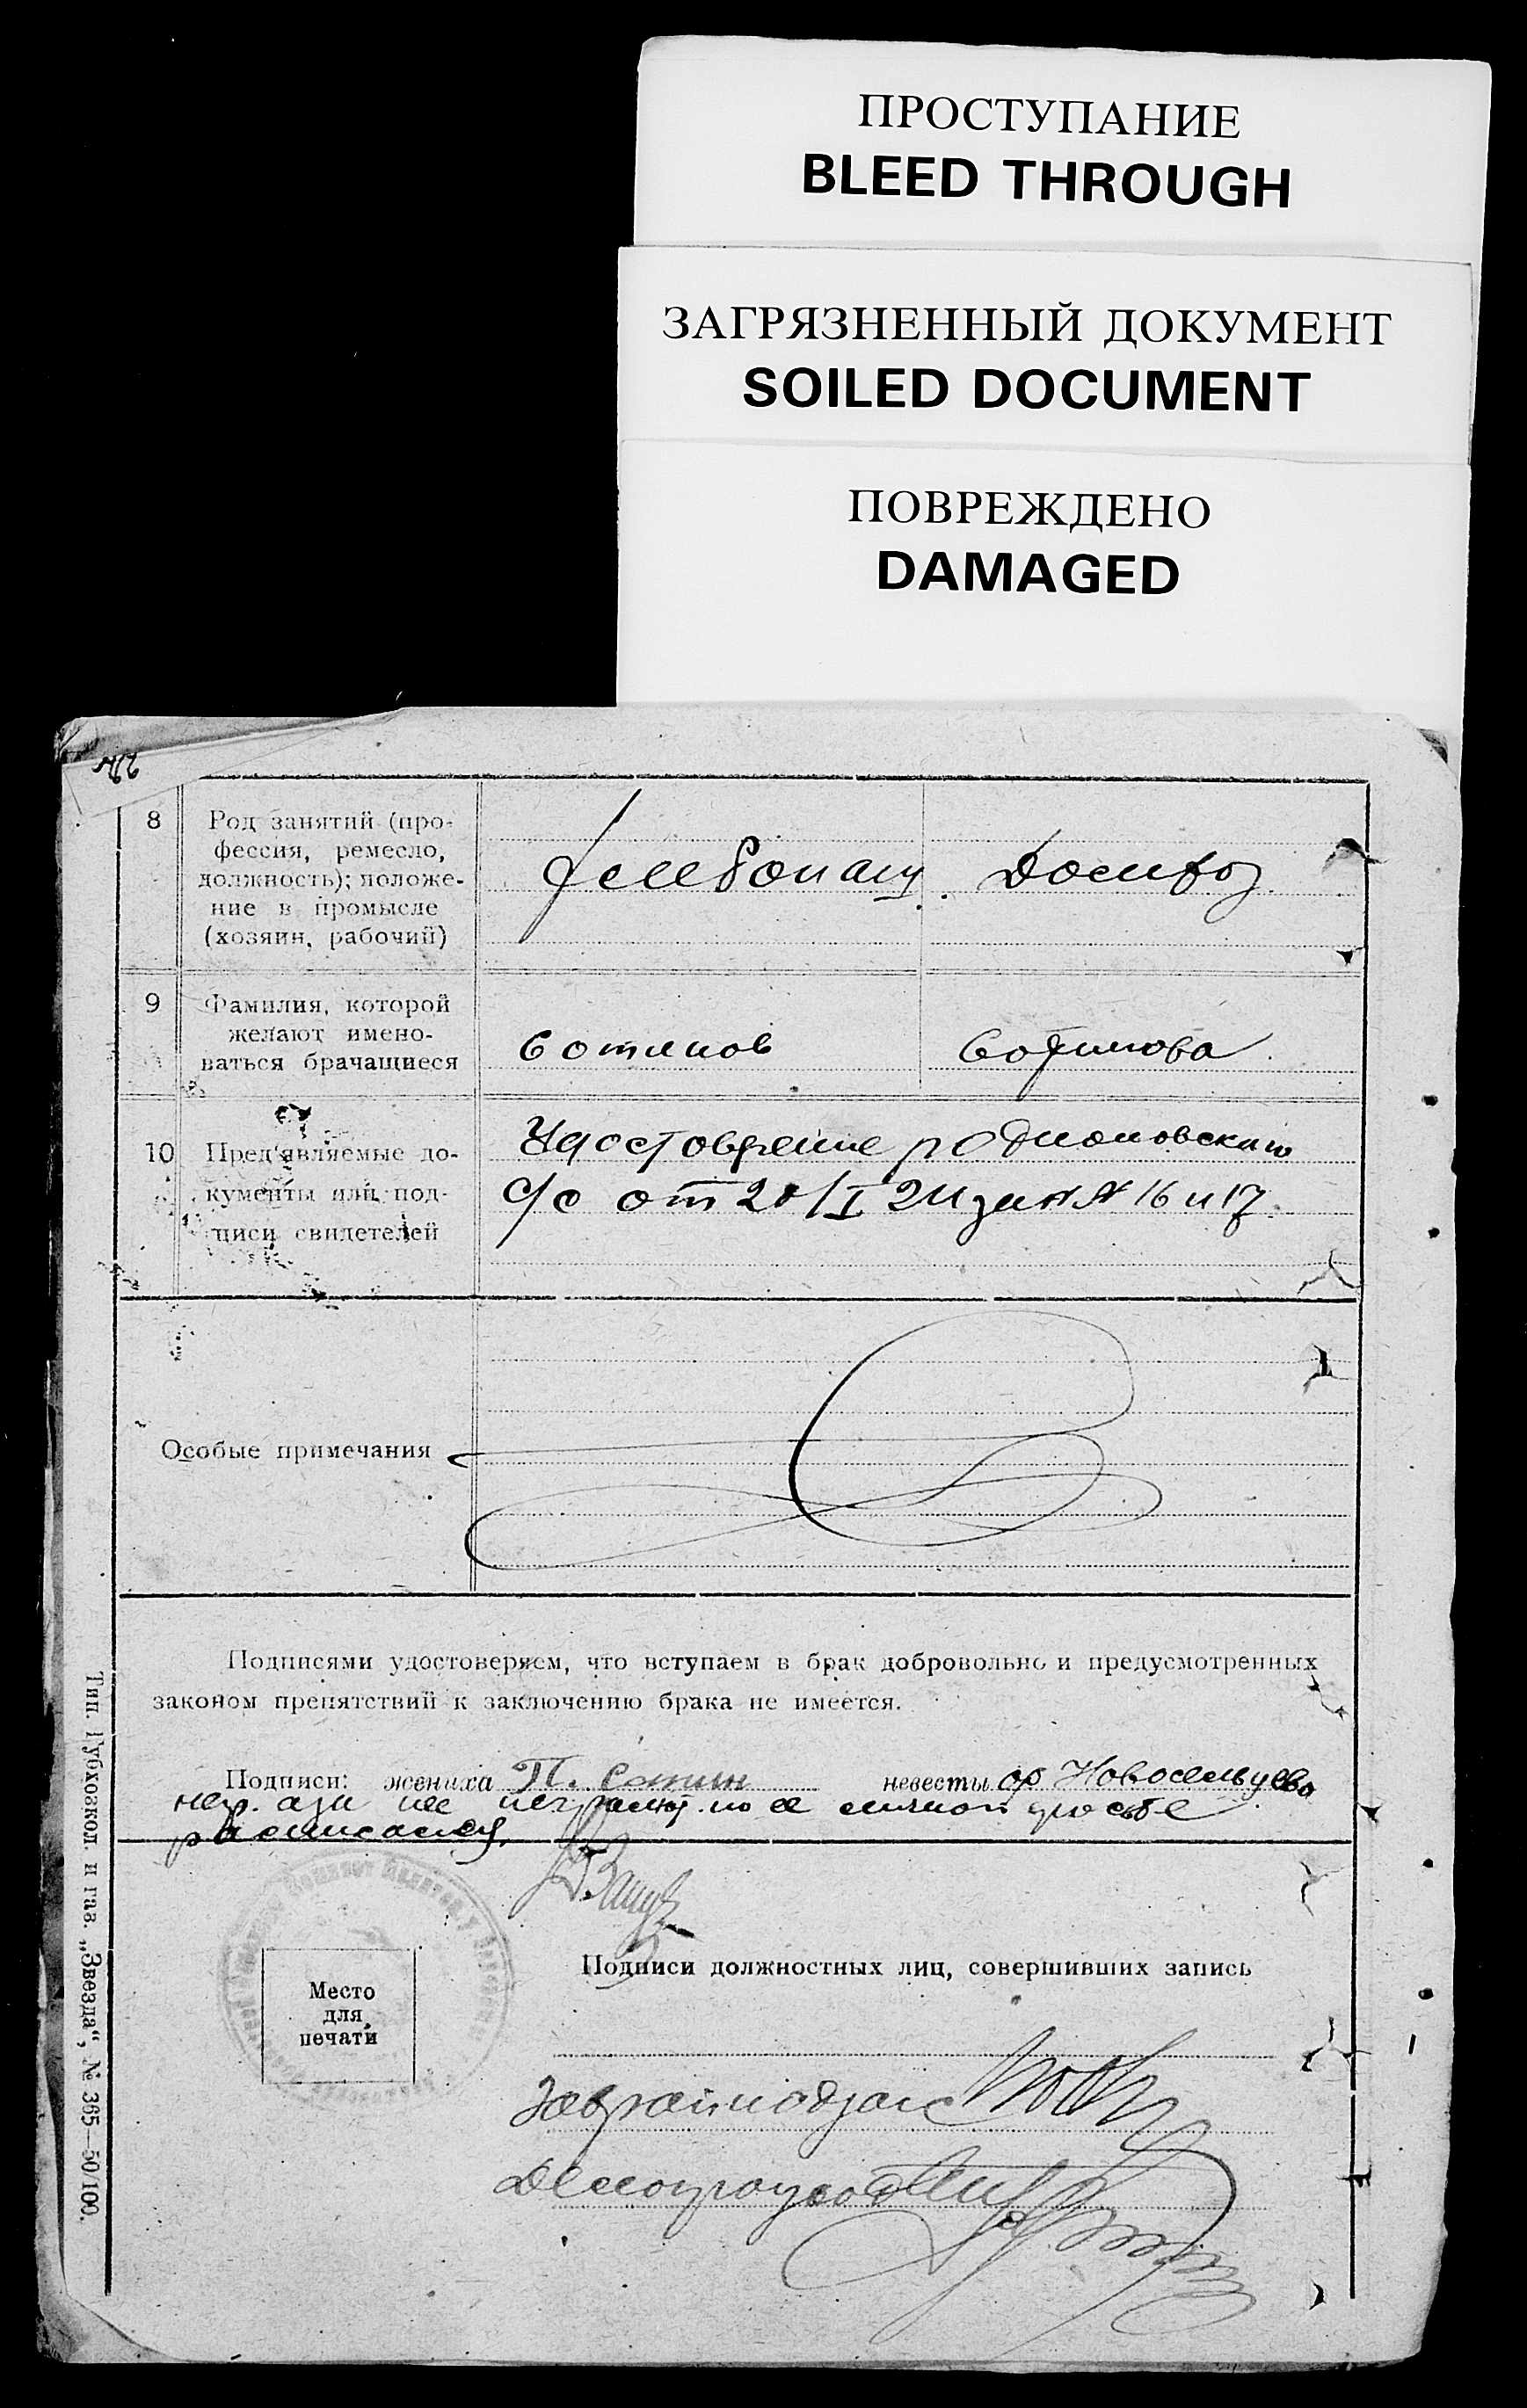 ПРОСТУПАНИЕ
BLEED THROUGH
ЗАГРЯЗНЕННЫЙ ДОКУМЕНТ
SOILED DOCUMENT
ПОВРЕЖДЕНО
DAMAGED
8
Род занятий (про-
фессия, ремесло,
должность); положе-
ние в промысле
(хозяин, рабочий)
9
Фамилия, которой
желают имено-
ваться брачащиеся
Сотинов
Сотинова
10
Пред'являемые до-
кументы или под-
писи свидетелей
Удостоврение родионовскаго
с/с от 20/I 24 за № № 16 и 17
Особые примечания
Подписями удостоверяем, что вступаем в брак добровольно и предусмотренных
законом препятствий к заключению брака не имеется.
Подписи: жениха П. Сотин невесты Новосельцева
по ее личной просьбе
расписался
Место
для
печати
Подписи должностных лиц, совершивших запись
Завраиподзагс
Делопроизвод
Тип. Губхозкол. и газ. „Звезда“, № 365—50/100.